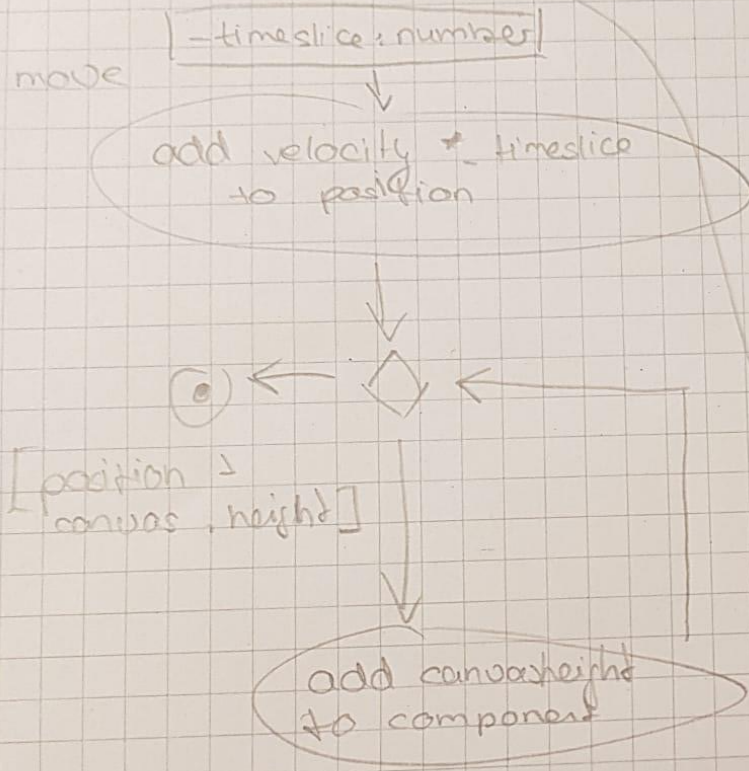 -timeslice : number
move
add velocity * timeslice
to position
[position >
canvas . height]
add canvasheight
to component